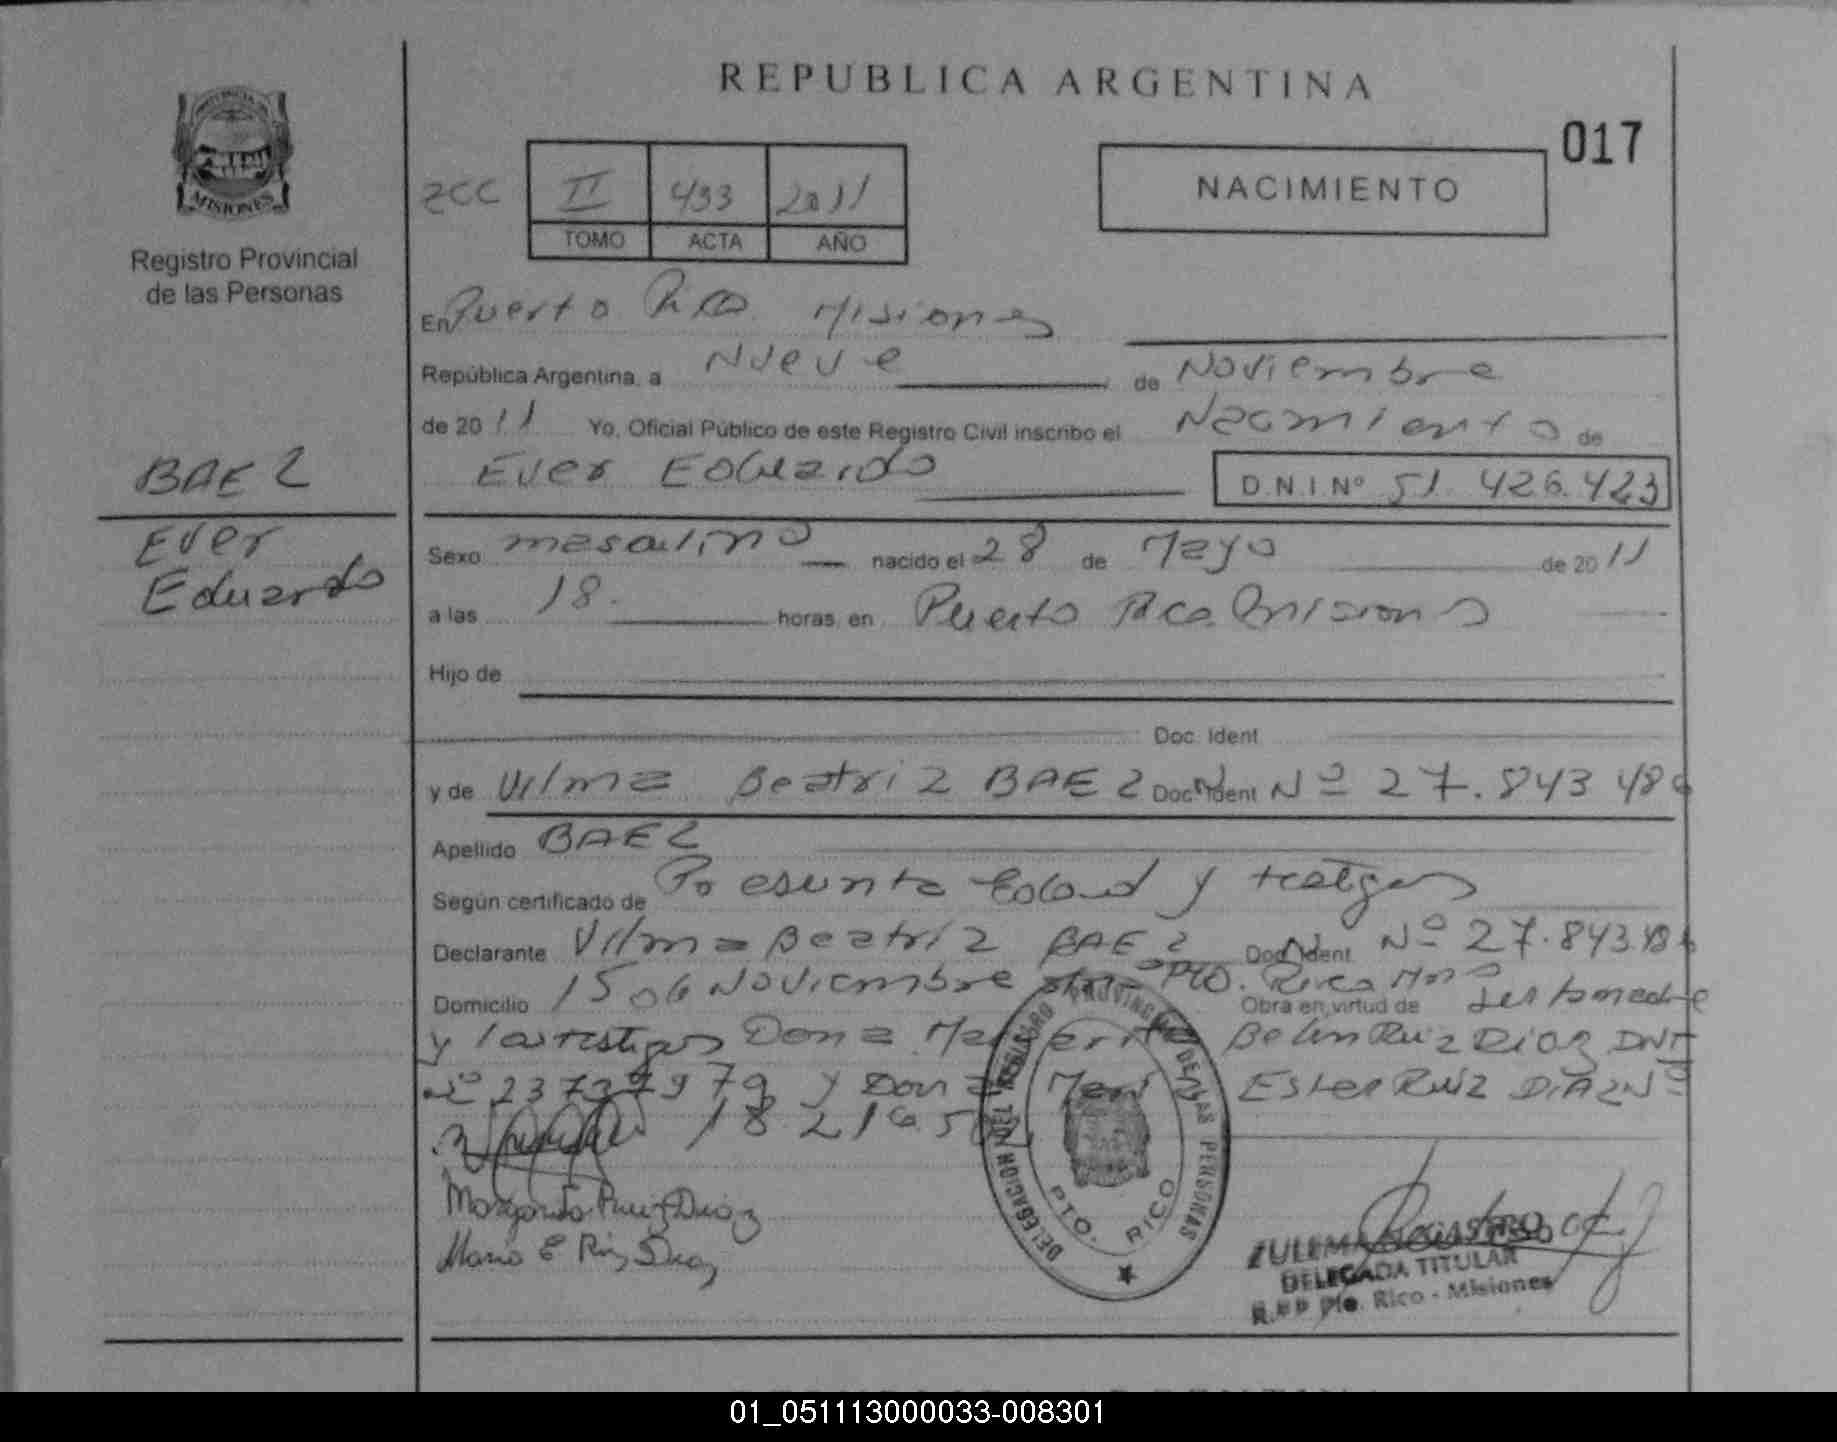 REPUBLICA ARGENTINA
017
PROVINCIA DE
MISIONES
Registro Provincial
de las Personas
ZCC
II 433 2011
TOMO ACTA AÑO
NACIMIENTO
En Puerto Rico Misiones
República Argentina, a Nueve de Noviembre
de 2011 Yo, Oficial Público de este Registro Civil inscribo el Nacimiento de
Ever Eduardo D.N.I.Nº 51.426.423
BAEZ
Ever
Eduardo
Sexo masculino nacido el 28 de Mayo de 2011
a las 18. horas, en Puerto Rico Misiones
Hijo de
Doc. Ident
y de Vilma Beatriz BAEZ Doc. Ident Nº 27.843 486
Apellido BAEZ
Según certificado de Presunta Edad y testigos
Declarante Vilma Beatriz BAEZ Doc. Ident. Nº 27.843.486
Domicilio 1506 Noviembre Pto. Rico Mnes Obra en virtud de ser la madre
y las testigos Dona Margarita Belen Ruiz Diaz DNI
Nº 23737979 y Dona Maria Ester Ruiz DIAZ Nº
18.216.5
Margarita Ruiz Diaz
Maria E Ruiz Diaz
DELEGACION DEL REGISTRO PROVINCIAL DE LAS PERSONAS
PTO. RICO
ZULEMA
DELEGADA TITULAR
R.P.P Pto. Rico - Misiones
01_051113000033-008301